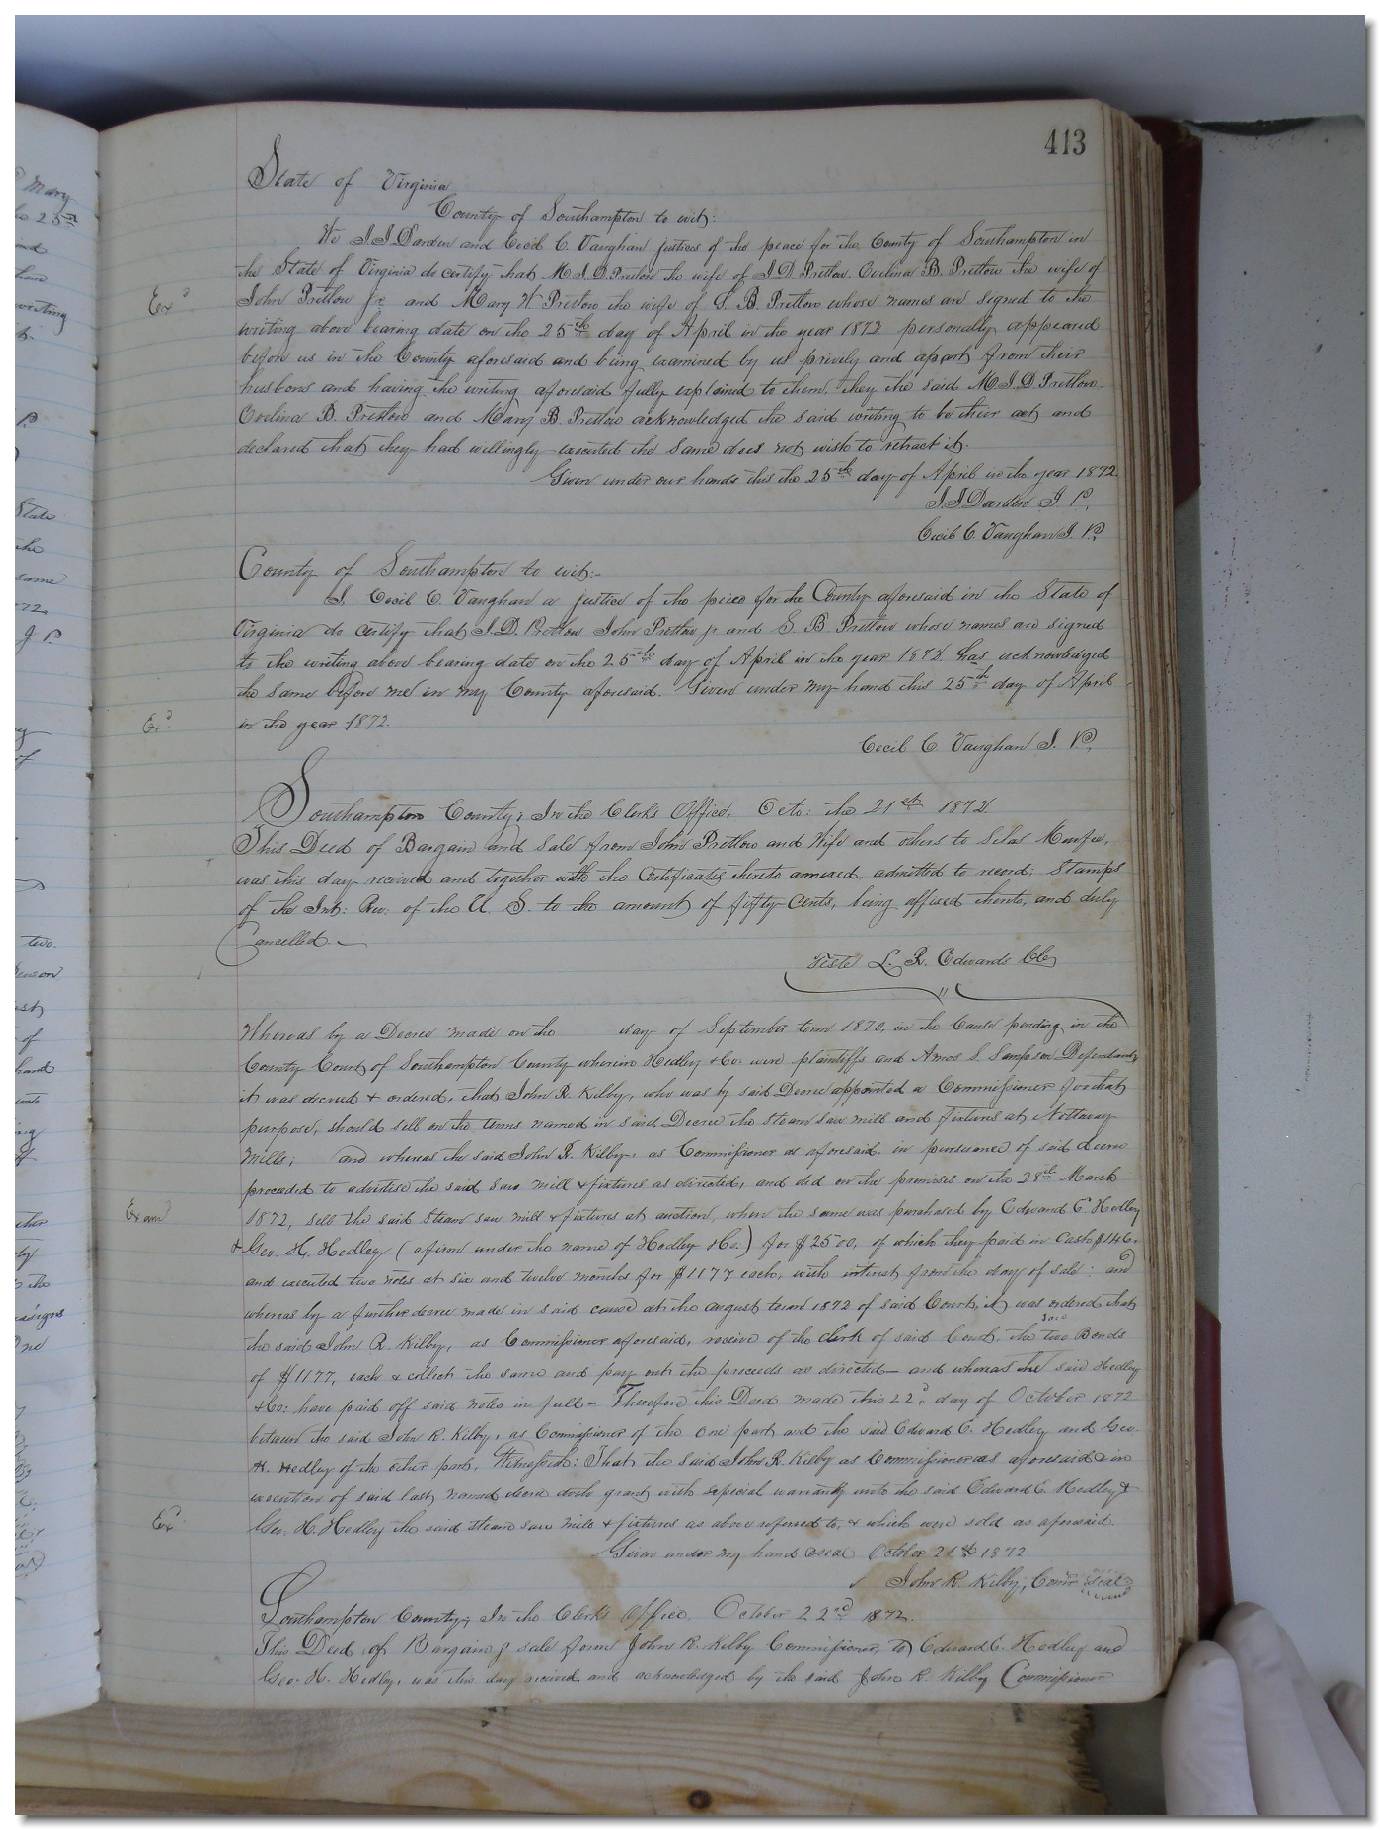 413
State of Virginia
County of Southampton to wit:
We J. J. Darden and Cecil C. Vaughan justices of the peace for the County of Southampton in
the State of Virginia do certify that M. J. D. Pretlow the wife of J. D. Pretlow. Ovelina B. Pretlow the wife of
John Pretlow Jr. and Mary H Pretlow the wife of S. B. Pretlow whose names are signed to the
writing above bearing date on the 25th day of April in the year 1872 personally appeared
before us in the County aforesaid and being examined by us privily and apart from their
husbans and having the writing aforesaid fully explained to them, they the said M. J. D. Pretlow
Ovelina B. Pretlow and Mary B. Pretlow acknowledged the said writing to be their act and
declared that they had willingly executed the same does not wish to retract it.
Given under our hands this the 25th day of April in the year 1872
J. J. Darden J. P.
Cecil C. Vaughan J. P.
County of Southampton to wit:-
I, Cecil C. Vaughan a justice of the peace for the County aforesaid in the State of
Virginia do certify that J. D. Pretlow John Pretlow jr and S. B Pretlow whose names are signed
to the writing above bearing date on the 25th day of April in the year 1872 has acknowledged
the same before me in my County aforesaid. Given under my hand this 25th day of April
in the year 1872.
Cecil C. Vaughan J. P.
Southampton County; In the Clerks Office, Octo: the 21st 1872.
This Deed of Bargain and Sale from John Pretlow and Wife and others to Silas
was this day received and together with the Certificates thereto annexed admitted to record. Stamps
of the Int: Rev: of the U. S. to the amount of fifty Cents, being affixed thereto, and duly
Cancelled.
Teste L. R. Edwards Clk
Whereas by a Decree made on the day of September term 1870, in the Cause pending in the
County Court of Southampton County wherein Hedley & Co. were plaintiffs and Amos S. Sampson Defendant,
it was decreed & ordered, that John R. Kilby, who was by said Decree appointed a Commissioner for that
purpose, should sell on the terms named in said Decree the Steam saw mill and fixtures at Nottoway
Mills; and whereas the said John R. Kilby, as Commissioner as aforesaid, in pursuance of said decree
proceeded to advertise the said Saw mill & fixtures as directed, and did on the premises on the 28th March
1872, sell the said Steam saw mill & fixtures at auction, when the same was purchased by Edward C. Hedley
& Geo. H. Hedley (a firm under the name of Hedley & Co.) for $2500, of which they paid in Cash $146.
and executed two notes at six and twelve months for $1177 each, with interest from the day of sale: and
whereas by a further decree made in said cause at the august term 1872 of said Court, it was ordered that
the said John R. Kilby, as Commissioner aforesaid, receive of the clerk of said Court, the said two Bonds
of $1177, each & collect the same and pay out the proceeds as directed— and whereas the said Hedley
& Co: have paid off said notes in full— Therefore this Deed made this 22d day of October 1872
between the said John R. Kilby, as Commissioner of the one part and the said Edward C. Hedley and Geo.
H. Hedley of the other part, Witnesseth: That the said John R. Kilby as Commissioner as aforesaid in
execution of said last named decree doth grant with special warranty unto the said Edward C. Hedley &
Geo. H. Hedley the said steam saw mill & fixtures as above referred to, & which were sold as aforesaid.
Given under my hand & seal October 21st 1872
John R. Kilby, Comr Seal
Southampton County; In the Clerk's Office, October 22nd 1872.
This Deed of Bargain & sale from John R. Kilby Commissioner, to Edward C. Hedley and
Geo. H. Hedley, was this day received and acknowledged by the said John R. Kilby Commissioner